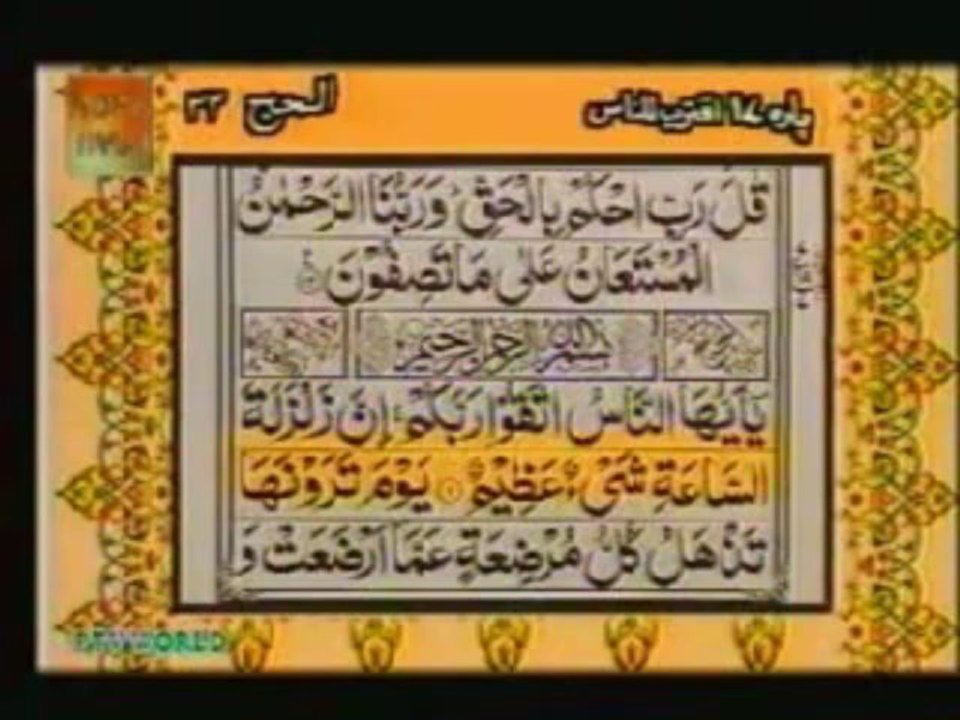 پاره ١٧ اقترب للناس
الحج ٢٢
قٰلَ رَبِّ احْكُمْ بِالْحَقِّ ؕ وَرَبُّنَا الرَّحْمٰنُ
الْمُسْتَعَانُ عَلٰى مَا تَصِفُوْنَ
بِسْمِ اللّٰهِ الرَّحْمٰنِ الرَّحِيْمِ
يٰۤاَيُّهَا النَّاسُ اتَّقُوْا رَبَّكُمْ ۚ اِنَّ زَلْزَلَةَ
السَّاعَةِ شَىْءٌ عَظِيْمٌ ۝١ يَوْمَ تَرَوْنَهَا
تَذْهَلُ كُلُّ مُرْضِعَةٍ عَمَّاۤ اَرْضَعَتْ وَ